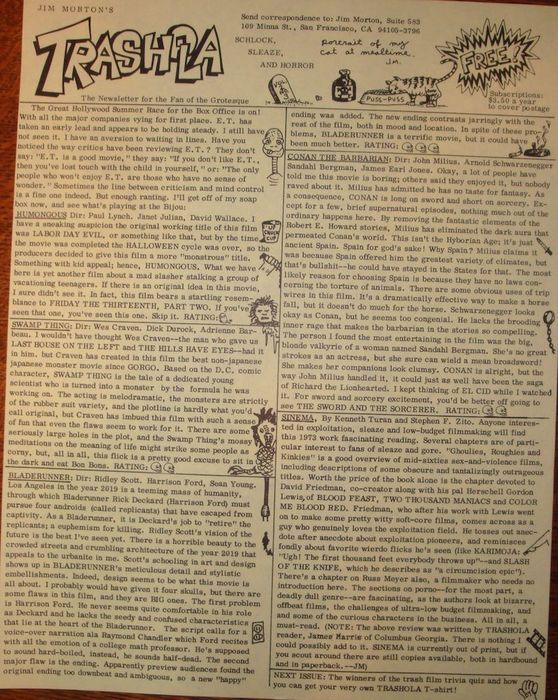 JIM MORTON'S
TRASHOLA
The Newsletter for the Fan of the Grotesque
Send correspondence to: Jim Morton, Suite 583
109 Minna St., San Francisco, CA 94105-3796
SCHLOCK,
SLEAZE,
AND HORROR
portrait of my
cat at mealtime
J.M.
PUSS-PUSS
FREE!
Subscriptions:
$3.50 a year
to cover postage
The Great Hollywood Summer Race for the Box Office is on!
With all the major companies vying for first place. E.T. has
taken an early lead and appears to be holding steady. I still have
not seen it. I have an aversion to waiting in lines. Have you
noticed the way critics have been reviewing E.T.? They don't
say: "E.T. is a good movie," they say: "If you don't like E.T.,
then you've lost touch with the child in yourself," or: "The only
people who won't enjoy E.T. are those who have no sense of
wonder." Sometimes the line between criticism and mind control
is a fine one indeed. But enough ranting. I'll get off of my soap
box now, and see what's playing at the Bijou:
HUMONGOUS Dir: Paul Lynch. Janet Julian, David Wallace. I
have a sneaking suspicion the original working title of this film
was LABOR DAY EVIL, or something like that, but by the time
the movie was completed the HALLOWEEN cycle was over, so the
producers decided to give this film a more "monstrous" title.
Something with kid appeal; hence, HUMONGOUS. What we have
here is yet another film about a mad slasher stalking a group of
vacationing teenagers. If there is an original idea in this movie,
I sure didn't see it. In fact, this film bears a startling resem-
blance to FRIDAY THE THIRTEENTH, PART TWO. If you've
seen that one, you've seen this one. Skip it. RATING:
SWAMP THING: Dir: Wes Craven. Dick Durock, Adrienne Bar-
beau. I wouldn't have thought Wes Craven--the man who gave us
LAST HOUSE ON THE LEFT and THE HILLS HAVE EYES--had it
in him, but Craven has created in this film the best non-japanese
japanese monster movie since GORGO. Based on the D.C. comic
character, SWAMP THING is the tale of a dedicated young
scientist who is turned into a monster by the formula he was
working on. The acting is melodramatic, the monsters are strictly
of the rubber suit variety, and the plotline is hardly what you'd
call original, but Craven has imbued this film with such a sense
of fun that even the flaws seem to work for it. There are some
seriously large holes in the plot, and the Swamp Thing's mossy
meditations on the meaning of life might strike some people as
corny, but, all in all, this flick is a pretty good excuse to sit in
the dark and eat Bon Bons. RATING:
BLADERUNNER: Dir: Ridley Scott. Harrison Ford, Sean Young.
Los Angeles in the year 2019 is a teeming mass of humanity,
through which Bladerunner Rick Deckard (Harrison Ford) must
pursue four androids (called replicants) that have escaped from
captivity. As a Bladerunner, it is Deckard's job to "retire" the
replicants; a euphemism for killing. Ridley Scott's vision of the
future is the best I've seen yet. There is a horrible beauty to the
crowded streets and crumbling architecture of the year 2019 that
appeals to the urbanite in me. Scott's schooling in art and design
shows up in BLADERUNNER's meticulous detail and stylistic
embellishments. Indeed, design seems to be what this movie is
all about. I probably would have given it four skulls, but there are
some flaws in this film, and they are BIG ones. The first problem
is Harrison Ford. He never seems quite comfortable in his role
as Deckard and he lacks the seedy and confused characteristics
that lie at the heart of Bladerunner. The script calls for a
voice-over narration ala Raymond Chandler which Ford recites
with all the emotion of a college math professor. He's supposed
to sound hard-boiled, instead, he sounds half-dead. The second
major flaw is the ending. Apparently preview audiences found the
original ending too downbeat and ambiguous, so a new "happy"
ending was added. The new ending contrasts jarringly with the
rest of the film, both in mood and location. In spite of these pro-
blems, BLADERUNNER is a terrific movie, but it could have
been much better. RATING:
CONAN THE BARBARIAN: Dir: John Milius. Arnold Schwarzenegger
Sandahl Bergman, James Earl Jones. Okay, a lot of people have
told me this movie is boring; others said they enjoyed it, but nobody
raved about it. Milius has admitted he has no taste for fantasy. As
a consequence, CONAN is long on sword and short on sorcery. Ex-
cept for a few, brief supernatural episodes, nothing much out of the
ordinary happens here. By removing the fantastic elements of the
Robert E. Howard stories, Milius has eliminated the dark aura that
permeated Conan's world. This isn't the Hyborian Age; it's just
ancient Spain. Spain for god's sake! Why Spain? Milius claims it
was because Spain offered him the greatest variety of climates, but
that's bullshit--he could have stayed in the States for that. The most
likely reason for choosing Spain is because they have no laws con-
cerning the torture of animals. There are some obvious uses of trip
wires in this film. It's a dramatically effective way to make a horse
fall, but it doesn't do much for the horse. Schwarzenegger looks
okay as Conan, but he seems too congenial. He lacks the brooding
inner rage that makes the barbarian in the stories so compelling.
The person I found the most entertaining in the film was the big,
blonde valkyrie of a woman named Sandahl Bergman. She's no great
strokes as an actress, but she sure can wield a mean broadsword!
She makes her companions look clumsy. CONAN is alright, but the
way John Milius handled it, it could just as well have been the saga
of Richard the Lionhearted. I kept thinking of EL CID while I watched
it. For sword and sorcery excitement, you'd be better off going to
see THE SWORD AND THE SORCERER. RATING:
SINEMA, By Kenneth Turan and Stephen F. Zito. Anyone interes-
ted in exploitation, sleaze and low-budget filmmaking will find
this 1973 work fascinating reading. Several chapters are of parti-
cular interest to fans of sleaze and gore. "Ghoulies, Roughies and
Kinkies" is a good overview of mid-sixties sex-and-violence films,
including descriptions of some obscure and tantalizingly outrageous
titles. Worth the price of the book alone is the chapter devoted to
David Friedman, co-creator along with his pal Herschell Gordon
Lewis, of BLOOD FEAST, TWO THOUSAND MANIACS and COLOR
ME BLOOD RED. Friedman, who after his work with Lewis went
on to make some pretty witty soft-core films, comes across as a
guy who genuinely loves the exploitation field. He tosses out anec-
dote after anecdote about exploitation pioneers, and reminisces
fondly about favorite wierdo flicks he's seen (like KARIMOJA:
"Ugh! The first thousand feet everybody throws up"--and SLASH
OF THE KNIFE, which he describes as "a circumcision epic").
There's a chapter on Russ Meyer also, a filmmaker who needs no
introduction here. The sections on porno--for the most part, a
deadly dull genre--are fascinating, as the authors look at bizarre,
offbeat films, the challenges of ultra-low budget filmmaking, and
some of the curious characters in the business. All in all, a
must-read. (NOTE: The above review was written by TRASHOLA
reader, James Harris of Columbus Georgia. There is nothing I
could possibly add to it. SINEMA is currently out of print, but if
you scout around there are still copies available, both in hardbound
and in paperback.--JM)
NEXT ISSUE: The winners of the trash film trivia quiz and how
you can get your very own TRASHOLA T-shirt!